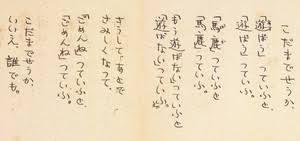 こだまでせうか、
「遊ばう」つていふと
「遊ばう」つていふ。
「馬鹿」つていふと
「馬鹿」つていふ。
「もう遊ばない」つていふと
「遊ばない」つていふ。
さうして、あとで
さみしくなつて、
「ごめんね」つていふと
「ごめんね」つていふ。
こだまでせうか、
いいえ、誰でも。